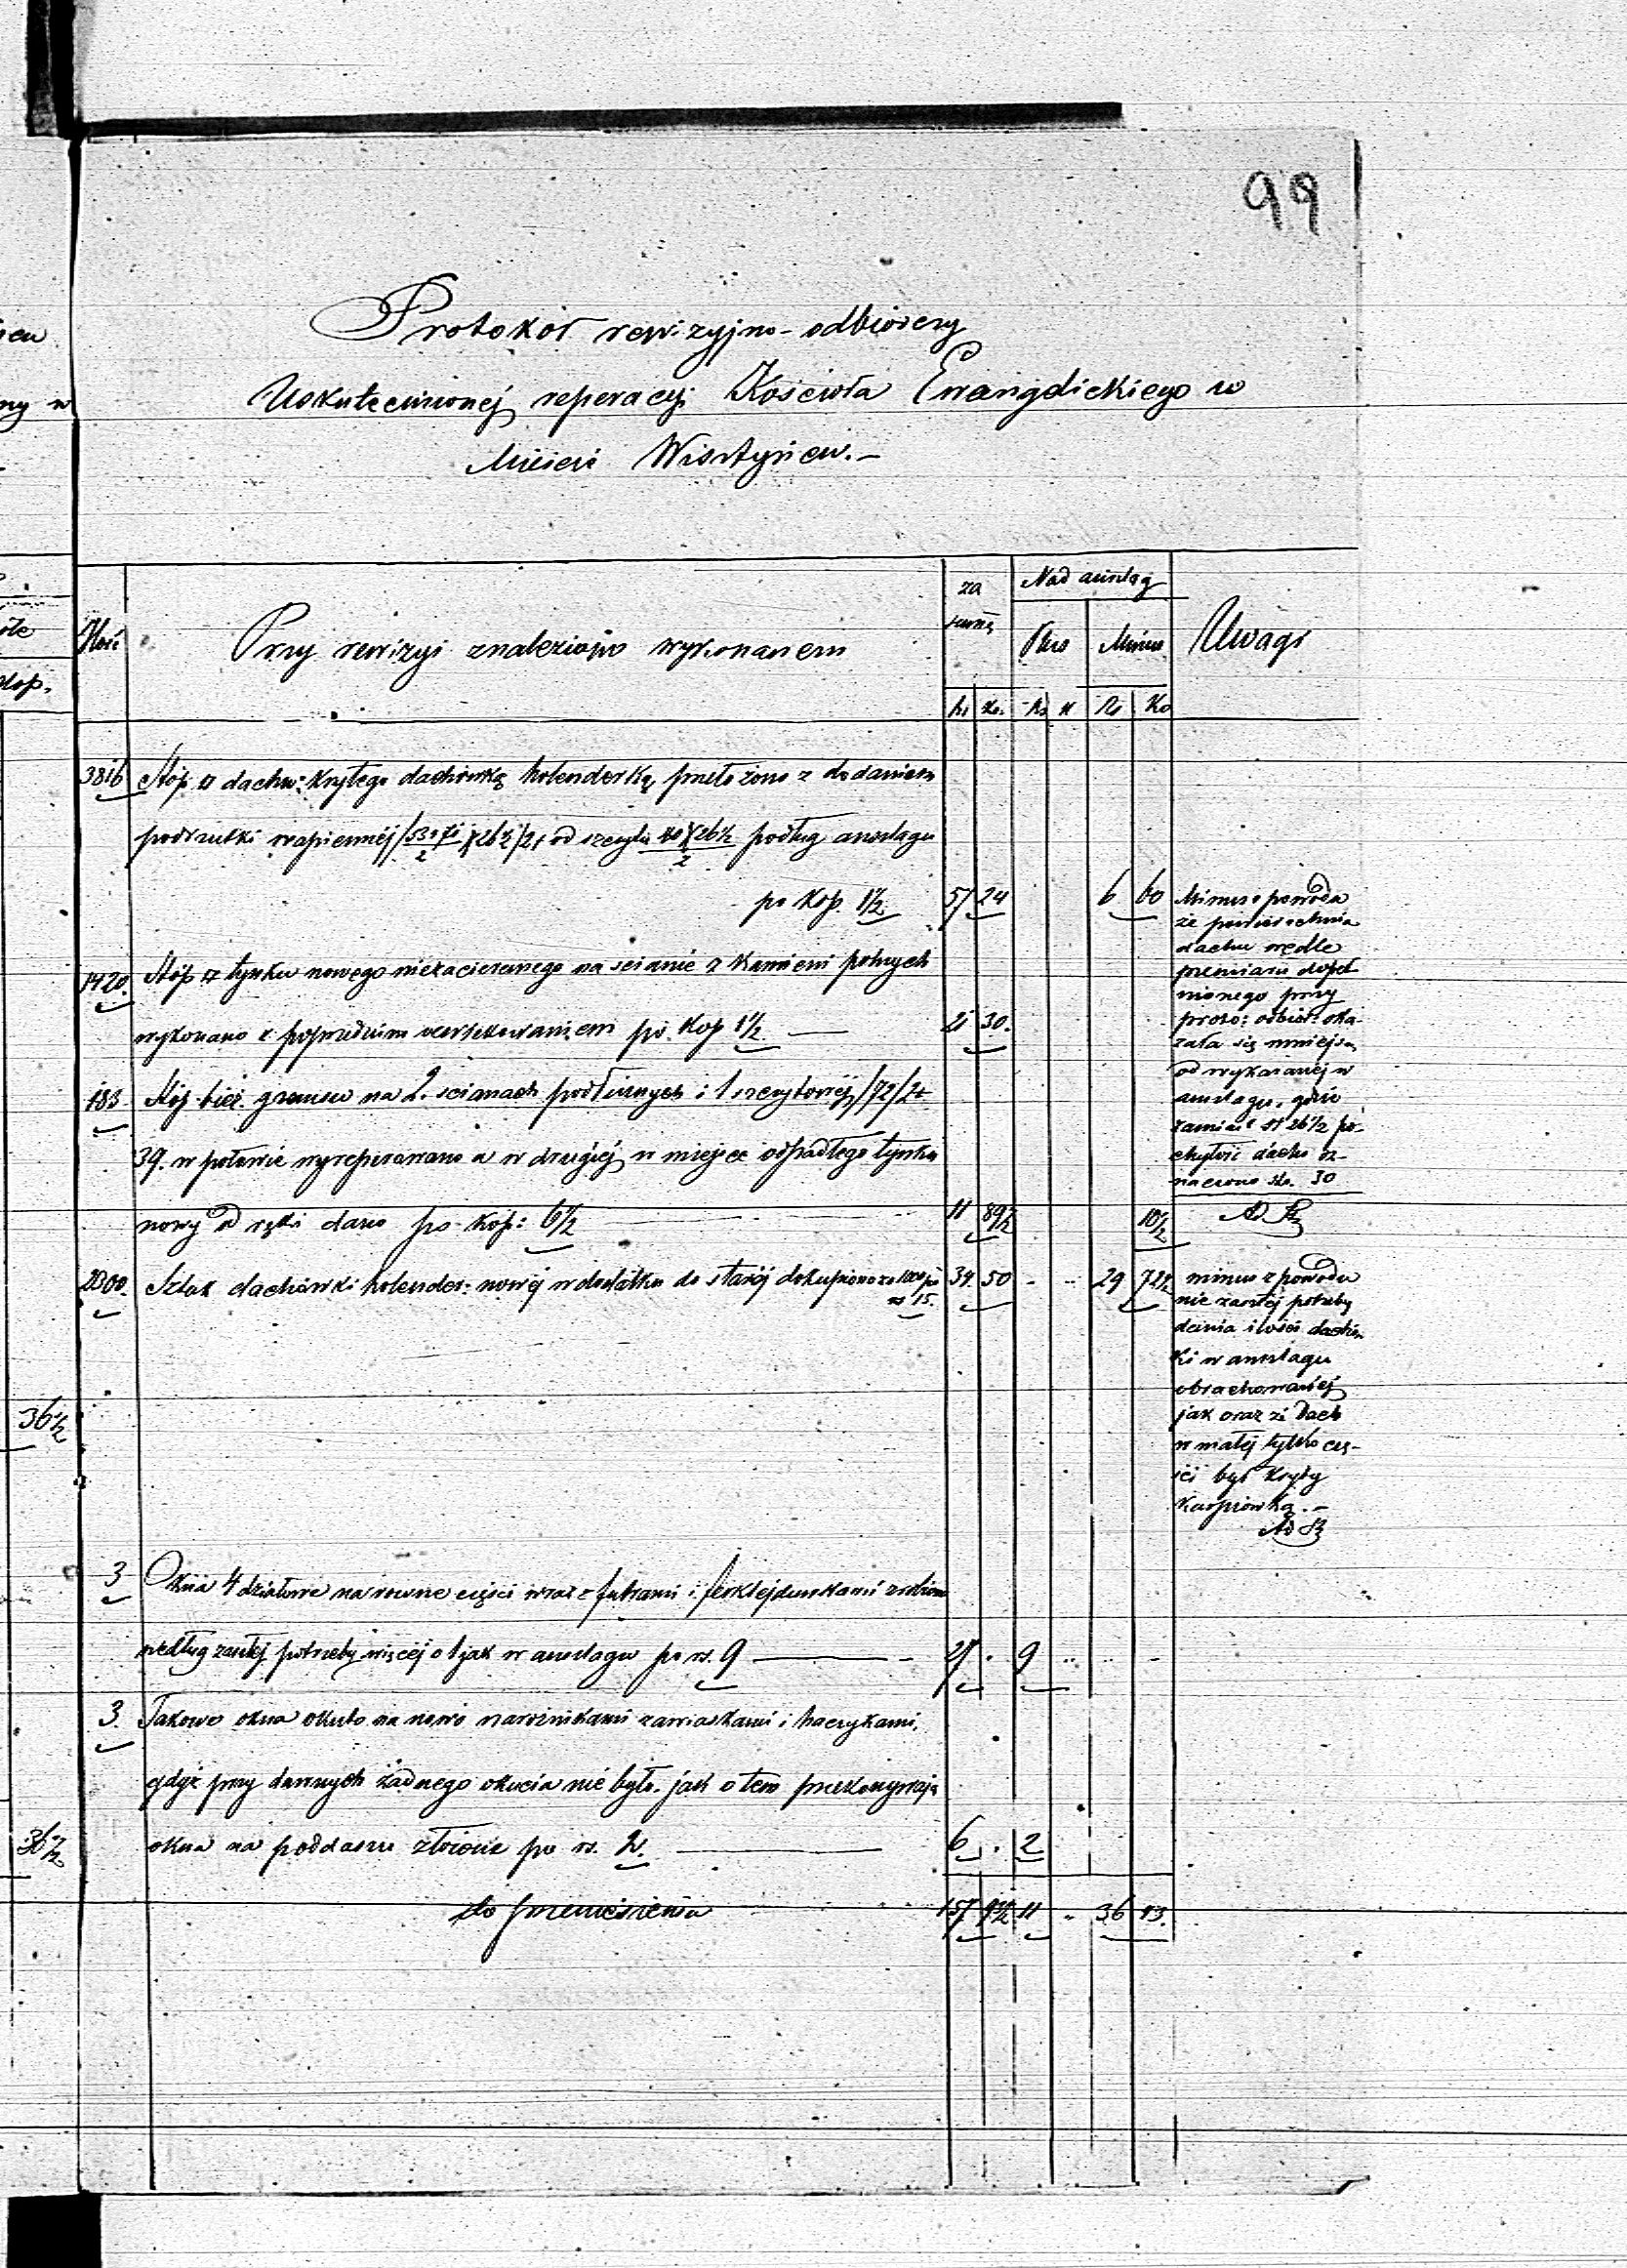 99
Protokół rewizyjno-odbiorczy
Uskutecznionej reperacyi Kościoła Ewangelickiego w
Mieście Wisztyńcu.-
Ilość
Przy rewizyi znaleziono wykonanem
za summę
Nad anszlag
Plus
Minus
Uwagi
Rs Ko. Rs K Rs Ko
3816 Stóp □ dachu: krytego dachówką holenderką, przełożono z dodaniem
podrzutki wapiennéj (53+71/2)(26½)2+ od szczytu 40)(26½/2 podług anszlagu
po kop. 1½ 57 24 6 60
Minus z powodu
że powierzchnia
dachu wedle
przemiaru dopeł
nionego przy
proto: odbior: oka-
zała się mniejszą
od wykazanej w
anszlagu, gdzie
zamiast st 26½ po-
chyłość dachu oz-
naczono st. 30
1420. Stóp □ tynku nowego niezacieranego na scianie z kamieni polnych
wykonano z poprzedniem oczyszczeniem po kop 1½ — 21 30.
183 Stóp bież. gzemsu na 2. scianach podłużnych i 1 szczytowéj /72/2+
39. w połowie wyreperowano a w drugiéj w miejsce odpadłego tynku
nowy od ręki dano po kop: 6½ 11 89½ 10½
2300. Sztuk dachówki holender: nowéj w dodatku do staréj dokupiono za 1000 po
rs 15. 34. 50 - .. 29 72½
minus z powodu
nie zaszłej potrzeby
dania ilości dachów
ki w anszlagu
obrachowanéj
jak oraz że dach
w małéj tylko czę-
ści był kryty
karpiówką.-
3 Okna 4 działowe na równe części wraz z futrami i ferklejdunkami zrobiono
według zaszłéj potrzeby więcéj o 1 jak w anszlagu po rs. 9 — 27 . 9 .. .. -
3. Takowe okna okuto na nowo narożnikami zawiaskami i haczykami,
gdyż przy dawnych żadnego okucia nie było. jak o tem przekonywają
okna na poddaszu złożone po rs. 2. — 6 . 2
do przeniesienia 157 93½ 11 .. 36 43.
36½
36½